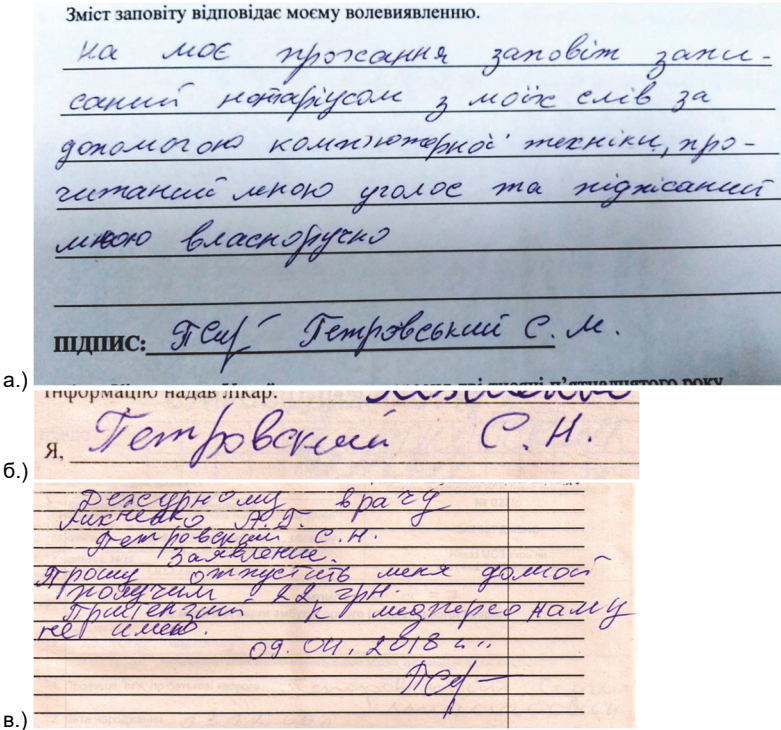 Зміст заповіту відповідає моєму волевиявленню.
На моє прохання заповіт запи-
саний нотаріусом з моїх слів за
допомогою комп'ютерної техніки, про-
читаний мною уголос та підписаний
мною власноручно
ПІДПИС: Петровський С. М.
а.)
Інформацію надав лікар:
Я, Петровский С. Н.
б.)
Дежурному врачу
А.Г.
Петровский С.Н.
Заявление.
Прошу отпустить меня домой
получил 22 грн.
Притензий к медперсоналу
не имею.
09.04.2018 г.
в.)